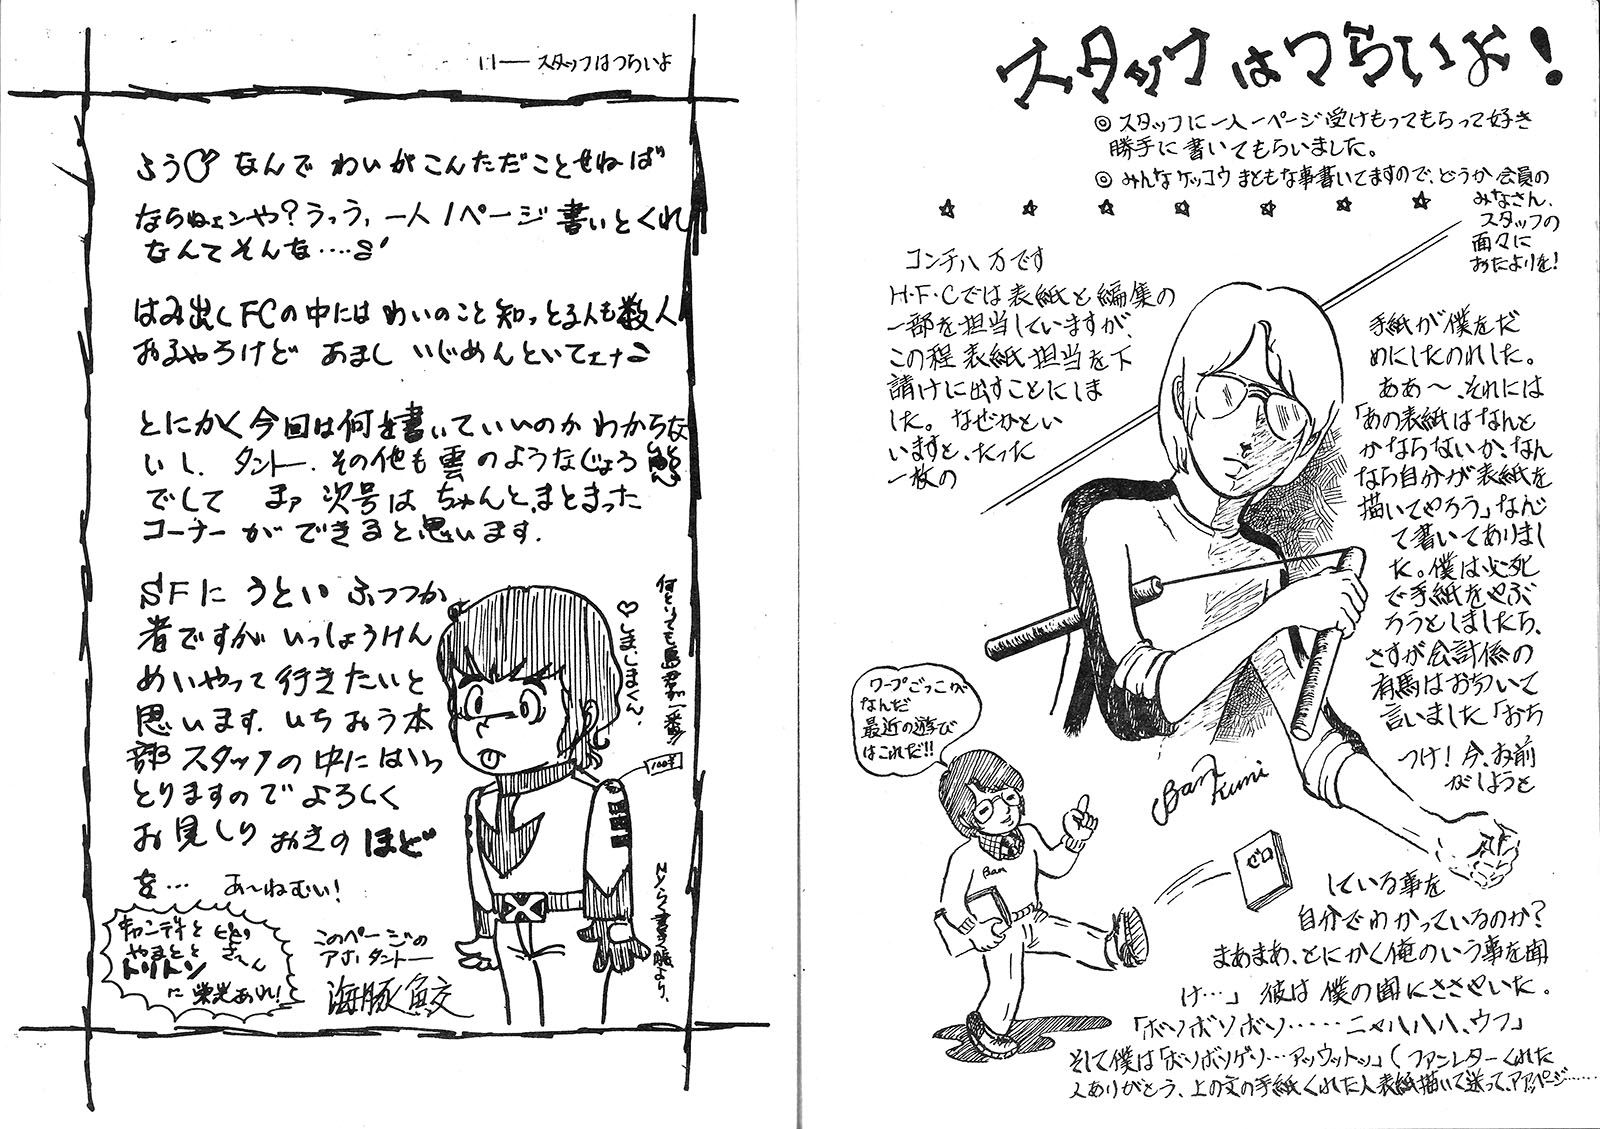 スタッフはつらいよ!
◎ スタッフに一人一ページ受けもってもらって好き
勝手に書いてもらいました。
◎ みんなケッコウまともな事書いてますので、どうか会員の
みなさん、
スタッフの
面々に
おたよりを!
☆ ☆ ☆ ☆ ☆ ☆ ☆
コンチハ 万です
H・F・Cでは表紙と編集の
一部を担当していますが、
この程 表紙担当を下
請けに出すことにしま
した。なぜかとい
いますと、たった
一枚の
手紙が僕をだ
めにしたのれした。
ああ〜、それには
「あの表紙はなんと
かならないか、なん
なら自分が表紙を
描いてやろう」なんじ
て書いてありまし
た。僕は必死
で手紙をやぶ
ろうとしましたら、
さすが会計係の
有馬はおちついて
言いました「おち
つけ!今、お前
がしようと
している事を
自分でわかっているのか?
まあまあ、とにかく俺のいう事を聞
け…」彼は僕の耳にささやいた。
「ボソボソボソ……ニャハハハ、ウフ」
そして僕は「ボソボソゲソ…アッウットッ」(ファンレターくれた
人ありがとう、上の文の手紙くれた人表紙描いて送って、アアッページ……
ワープごっこが
なんだ
最近の遊び
はこれだ!!
Ban
Kuni
Ban
ゼロ
11— スタッフはつらいよ
ふう なんで わいがこんただことせねば
ならねェンや?うっう、一人1ページ 書いとくれ
なんてそんな‥‥S'
はみ出しFCの中には わいのこと 知っとる人も数人
おるやろけど あまし いじめんといてェナ
とにかく今回は何を書いていいのか わからな
いし、タントー、その他も雲のようなじょう
でして まァ 次号は ちゃんと、まとまった
コーナーができると思います.
SFに うとい ふつつか
者ですが いっしょうけん
めいやって行きたいと
思います. いちおう本
部スタッフの中にはいっ
とりますのでよろしく
お見しりおきのほど
を… あ〜ねむい!
キャンディと
やまとと
トリトン
に栄光あれ!
このページの
アホタントー
海豚鮫
♡しましまくん.
何といっても島君が一番!!
100円